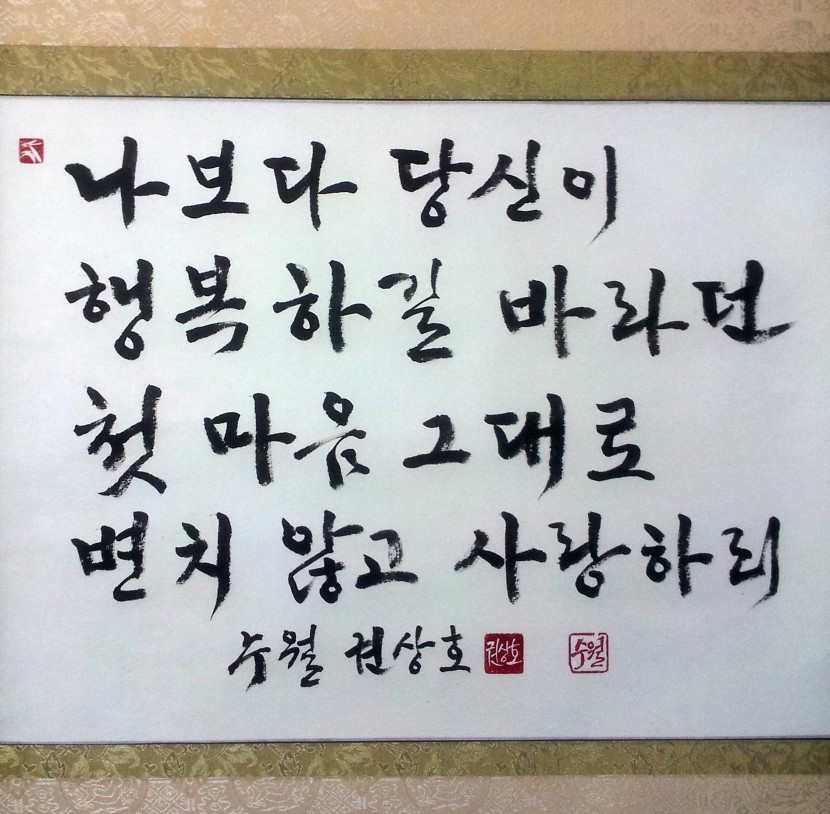 나보다 당신이
행복하길 바라던
첫 마음 그대로
변치 않고 사랑하리
수월 권상호 권상호 수월